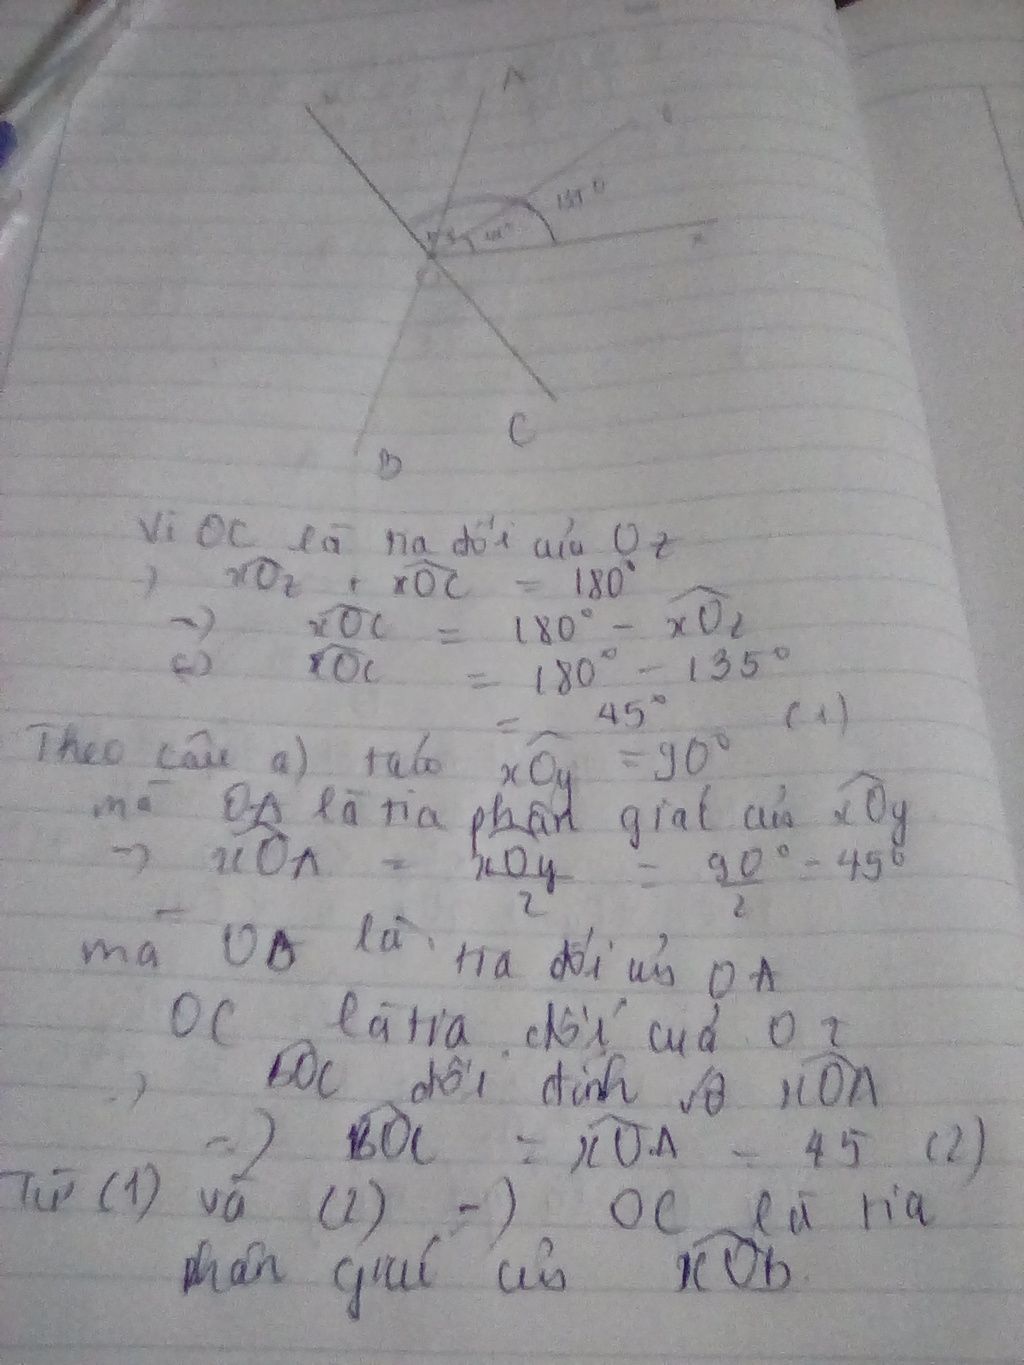 A
135°
x
O
C
B
Vì OC là tia đối của Oz
xOz + xOC = 180°
=) xOC = 180° - xOz
=) xOC = 180° - 135°
= 45° (1)
Theo câu a) ta có xOy = 90°
mà OA là tia phân giác của xOy
=) xOA = xOy/2 = 90°/2 = 45°
mà OB là tia đối của OA
OC là tia đối của Oz
BOC đối đỉnh với xOA
=) BOC = xOA = 45 (2)
Từ (1) và (2) =) OC là tia
phân giác của xOb